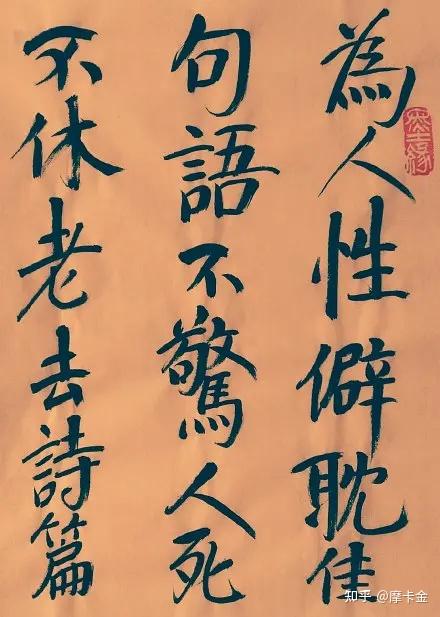 為人性僻耽佳
句語不驚人死
不休老去詩篇
墨缘
知乎 @摩卡金